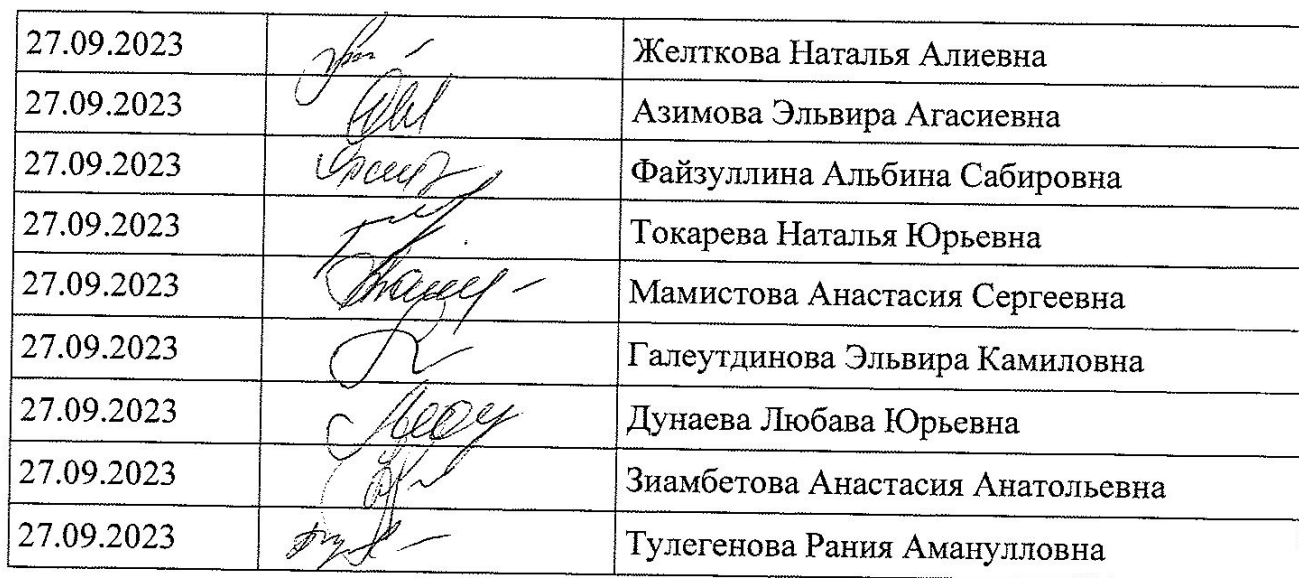 27.09.2023 Желткова Наталья Алиевна
27.09.2023 Азимова Эльвира Агасиевна
27.09.2023 Файзуллина Альбина Сабировна
27.09.2023 Токарева Наталья Юрьевна
27.09.2023 Мамистова Анастасия Сергеевна
27.09.2023 Галеутдинова Эльвира Камиловна
27.09.2023 Дунаева Любава Юрьевна
27.09.2023 Зиамбетова Анастасия Анатольевна
27.09.2023 Тулегенова Рания Амануллoвна